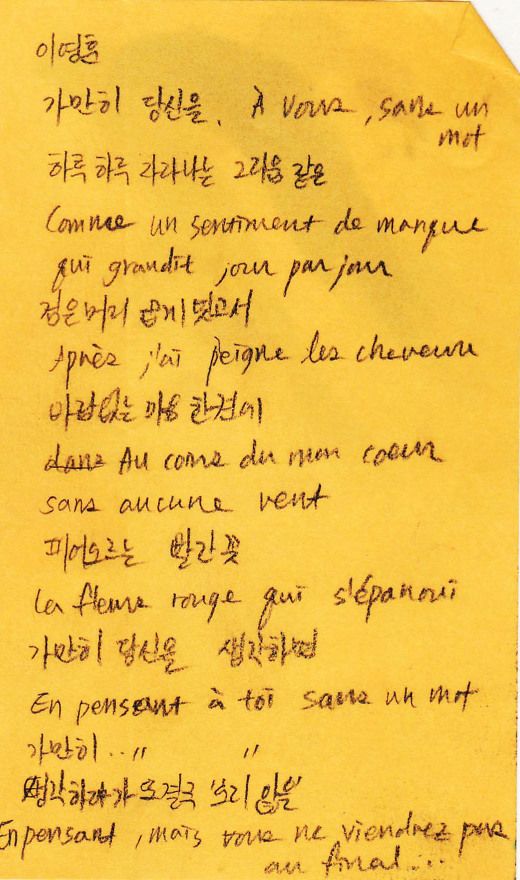 이영훈
가만히 당신을. À vous, sans un
mot
하루 하루 자라나는 그리움 같은
Comme un sentiment de manque
qui grandit jour par jour
검은머리 곱게 빗고서
Après j'ai peigne les cheveux
바람없는 마음 한켠에
dans Au coins du mon coeur
sans aucune vent
피어오르는 빨간 꽃
la fleurs rouge qui s'épanoui
가만히 당신을 생각하면
En pensant à toi sans un mot
가만히..〃 〃
생각하다가 또 결국 오리 않을
En pensant, mais vous ne viendrez pas
au final...